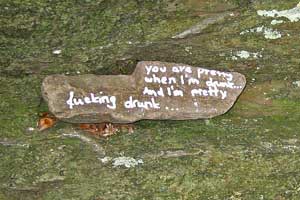 you are pretty
when I'm drunk...
And I'm pretty
fucking drunk....